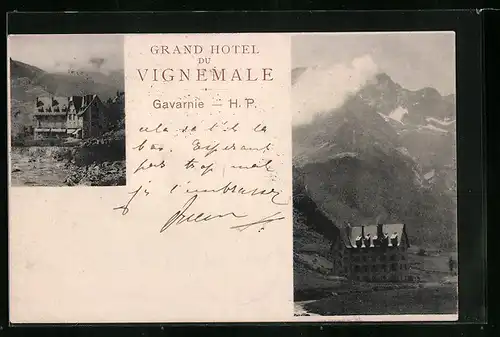 GRAND HOTEL
DU
VIGNEMALE
Gavarnie — H. P.
cela va t'il là
bas. Espérant
pas trop mal
je t'embrasse